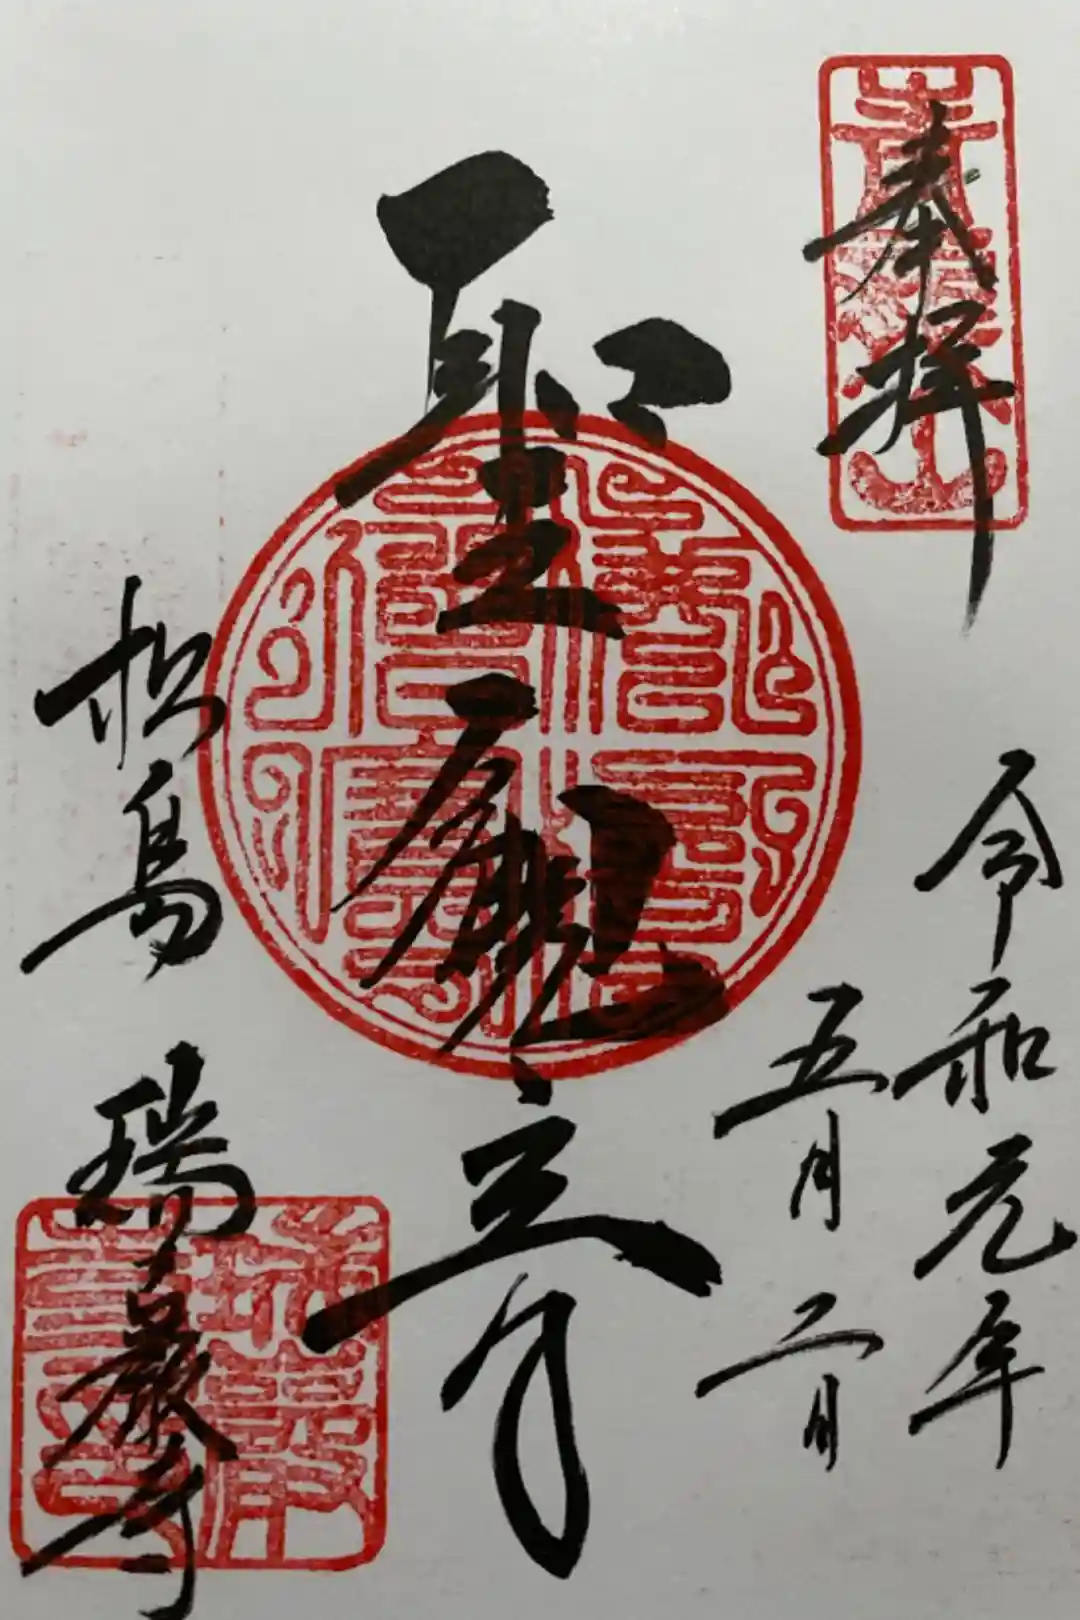 奉拝
青龍山
令和元年
五月二日
聖觀音
松島 瑞巌寺